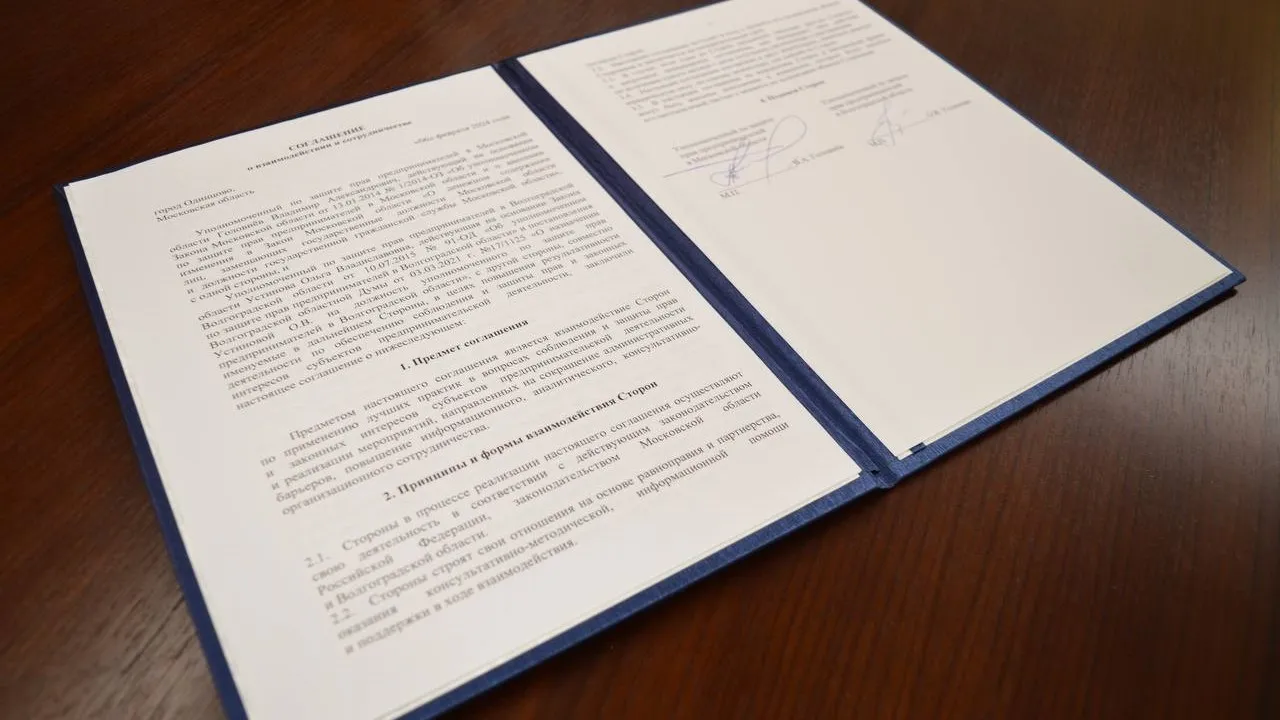 СОГЛАШЕНИЕ
о взаимодействии и сотрудничестве
город Одинцово,
Московская область
«06» февраля 2024 года
Уполномоченный по защите прав предпринимателей в Московской
области Головнёв Владимир Александрович, действующий на основании
Закона Московской области от 13.01.2014 № 1/2014-ОЗ «Об уполномоченном
по защите прав предпринимателей в Московской области и о внесении
изменения в Закон Московской области «О денежном содержании
лиц, замещающих государственные должности Московской области
и должности государственной гражданской службы Московской области»,
с одной стороны, и
Уполномоченный по защите прав предпринимателей в Волгоградской
области Устинова Ольга Владиславовна, действующая на основании Закона
Волгоградской области от 10.07.2015 № 91-ОД «Об уполномоченном
по защите прав предпринимателей в Волгоградской области» и постановления
Волгоградской областной Думы от 03.03.2021 г. №17/1125 «О назначении
Устиновой О.В. на должность уполномоченного по защите прав
предпринимателей в Волгоградской области», с другой стороны, совместно
именуемые в дальнейшем Стороны, в целях повышения результативности
деятельности по обеспечению соблюдения и защиты прав и законных
интересов субъектов предпринимательской деятельности, заключили
настоящее соглашение о нижеследующем:
1. Предмет соглашения
Предметом настоящего соглашения является взаимодействие Сторон
по применению лучших практик в вопросах соблюдения и защиты прав
и законных интересов субъектов предпринимательской деятельности
и реализации мероприятий, направленных на сокращение административных
барьеров, повышение информационного, аналитического, консультативно-
организационного сотрудничества.
2. Принципы и формы взаимодействия Сторон
2.1. Стороны в процессе реализации настоящего соглашения осуществляют
свою деятельность в соответствии с действующим законодательством
Российской Федерации, законодательством Московской области
и Волгоградской области.
2.2. Стороны строят свои отношения на основе равноправия и партнерства,
оказания консультативно-методической, информационной помощи
и поддержки в ходе взаимодействия.
4. Подписи Сторон
Уполномоченный по защите
прав предпринимателей
в Московской области
В.А. Головнёв
М.П.
Уполномоченный по защите
прав предпринимателей
в Волгоградской области
О.В. Устинова
М.П.